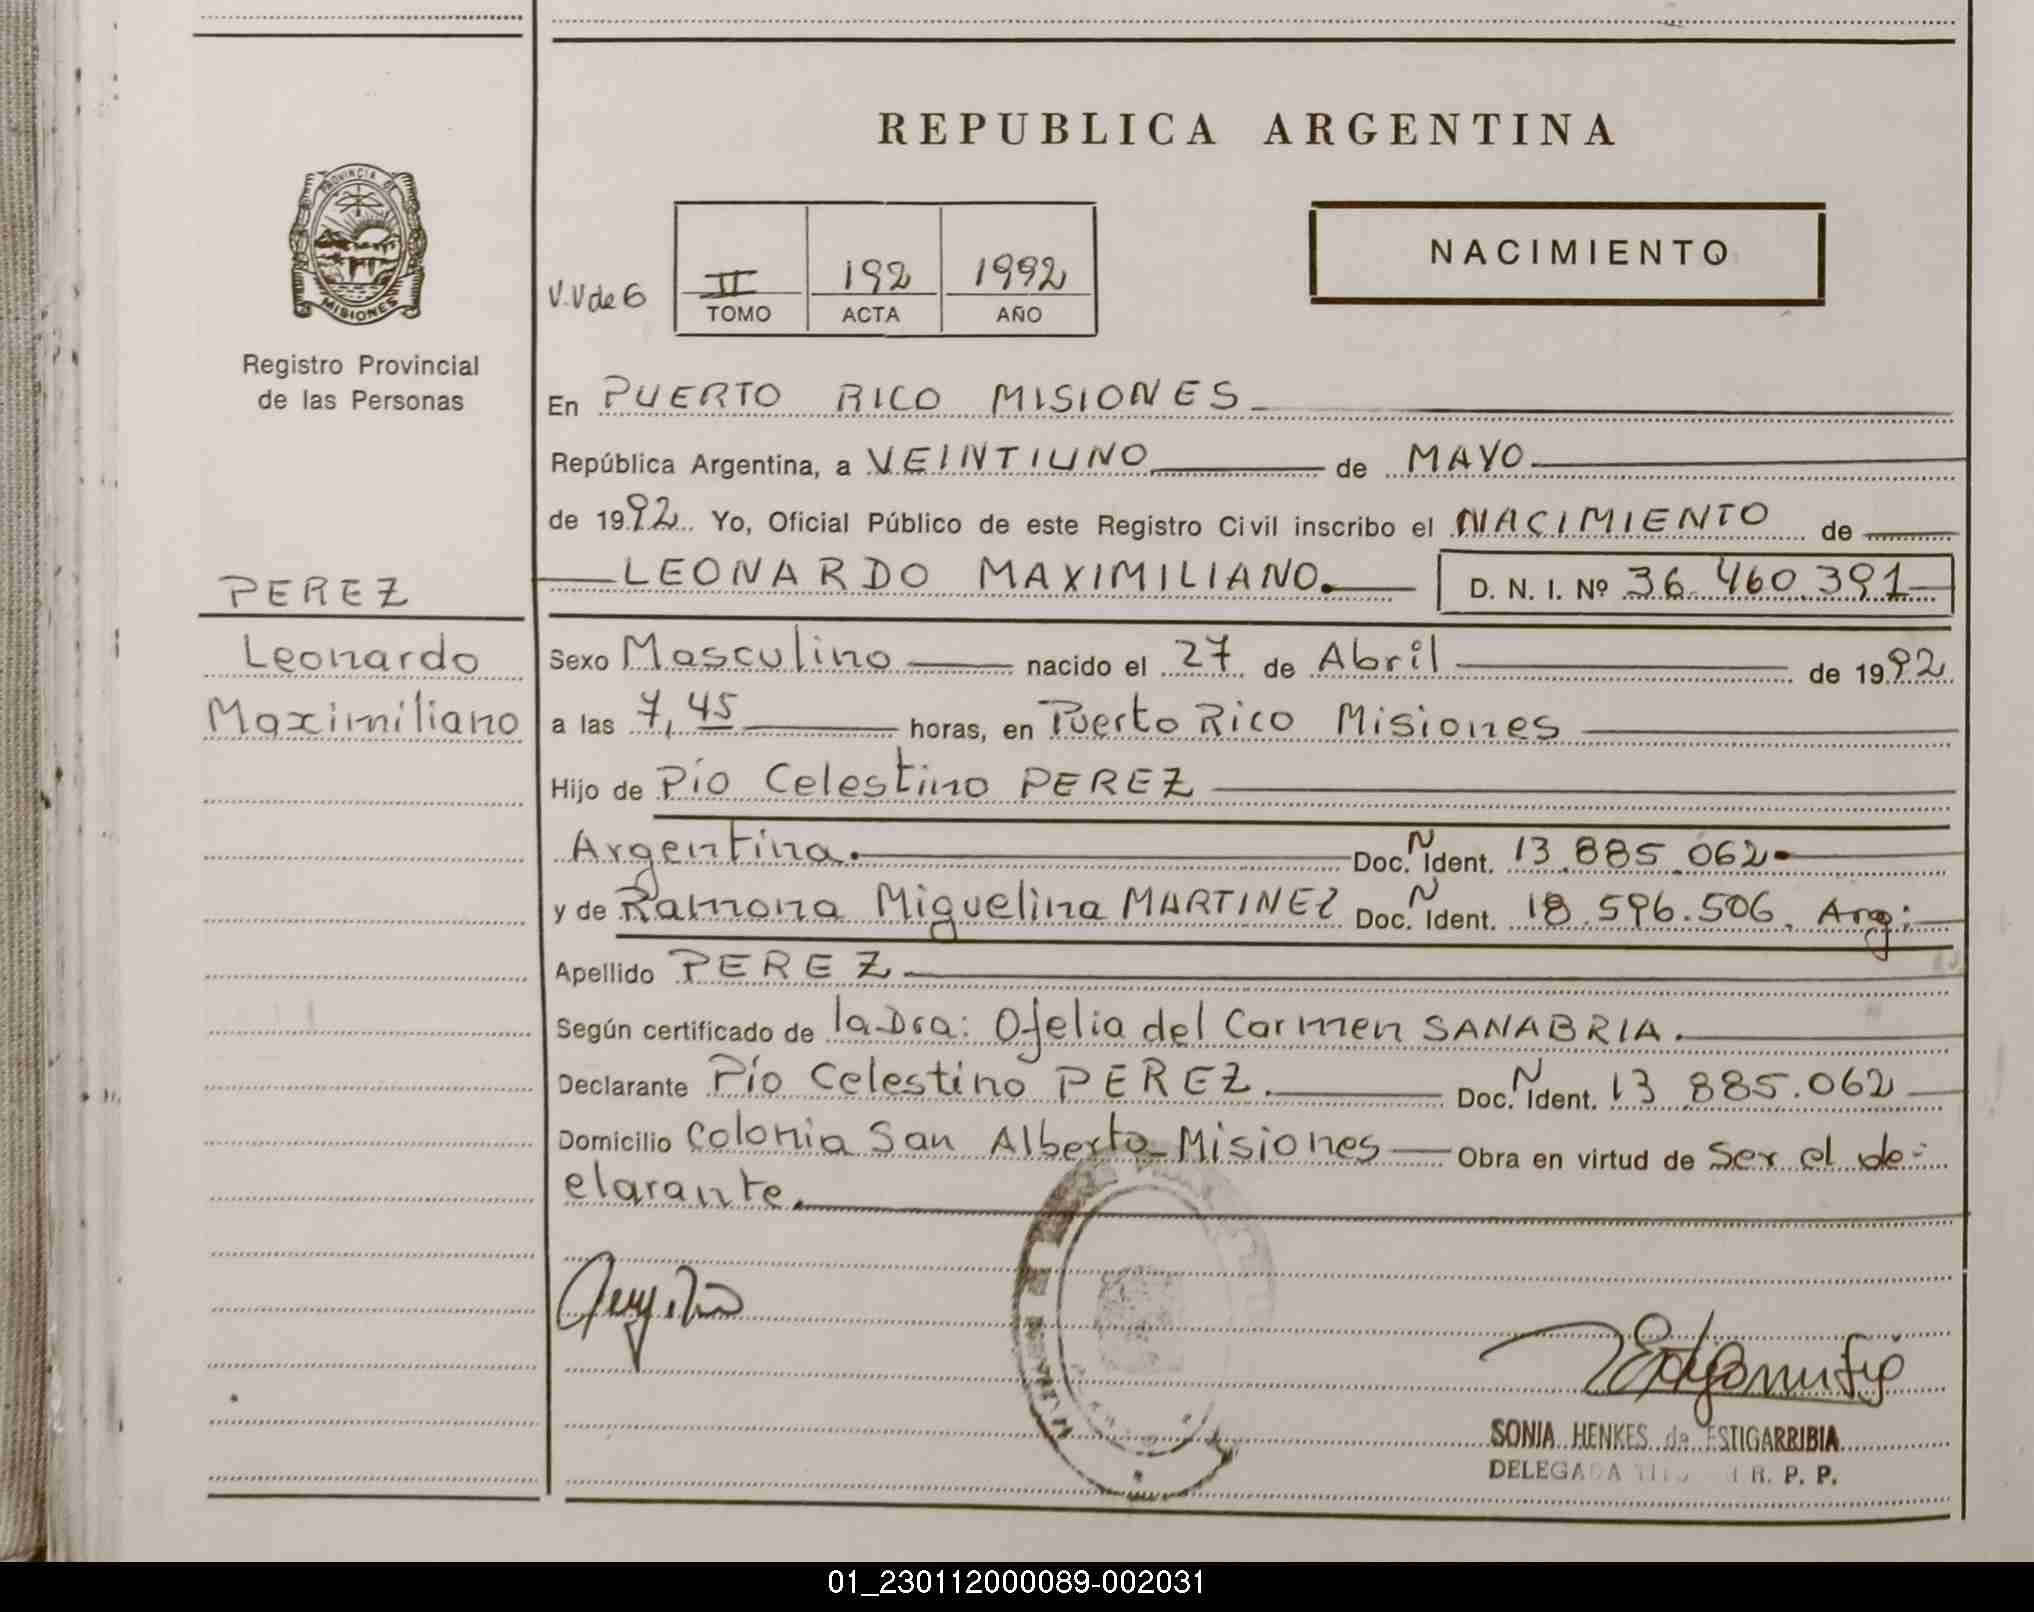 REPUBLICA ARGENTINA
PROVINCIA DE
MISIONES
Registro Provincial
de las Personas
NACIMIENTO
V.V de 6
II 192 1992
TOMO ACTA AÑO
En PUERTO RICO MISIONES
República Argentina, a VEINTIUNO de MAYO
de 1992 Yo, Oficial Público de este Registro Civil inscribo el NACIMIENTO de
LEONARDO MAXIMILIANO. D. N. I. Nº 36.460.391
PEREZ
Leonardo
Maximiliano
Sexo Masculino nacido el 27 de Abril de 1992
a las 7,45 horas, en Puerto Rico Misiones
Hijo de Pío Celestino PEREZ
Argentina. Doc. N Ident. 13.885.062
y de Ramona Miguelina MARTINEZ Doc. N Ident. 18.596.506. Arg:
Apellido PEREZ
Según certificado de la Dra: Ofelia del Carmen SANABRIA.
Declarante Pío Celestino PEREZ. Doc. N Ident. 13 885.062
Domicilio Colonia San Alberto-Misiones Obra en virtud de Ser el de-
clarante.
SONIA HENKES de ESTIGARRIBIA
DELEGADA R. P. P.
01_230112000089-002031